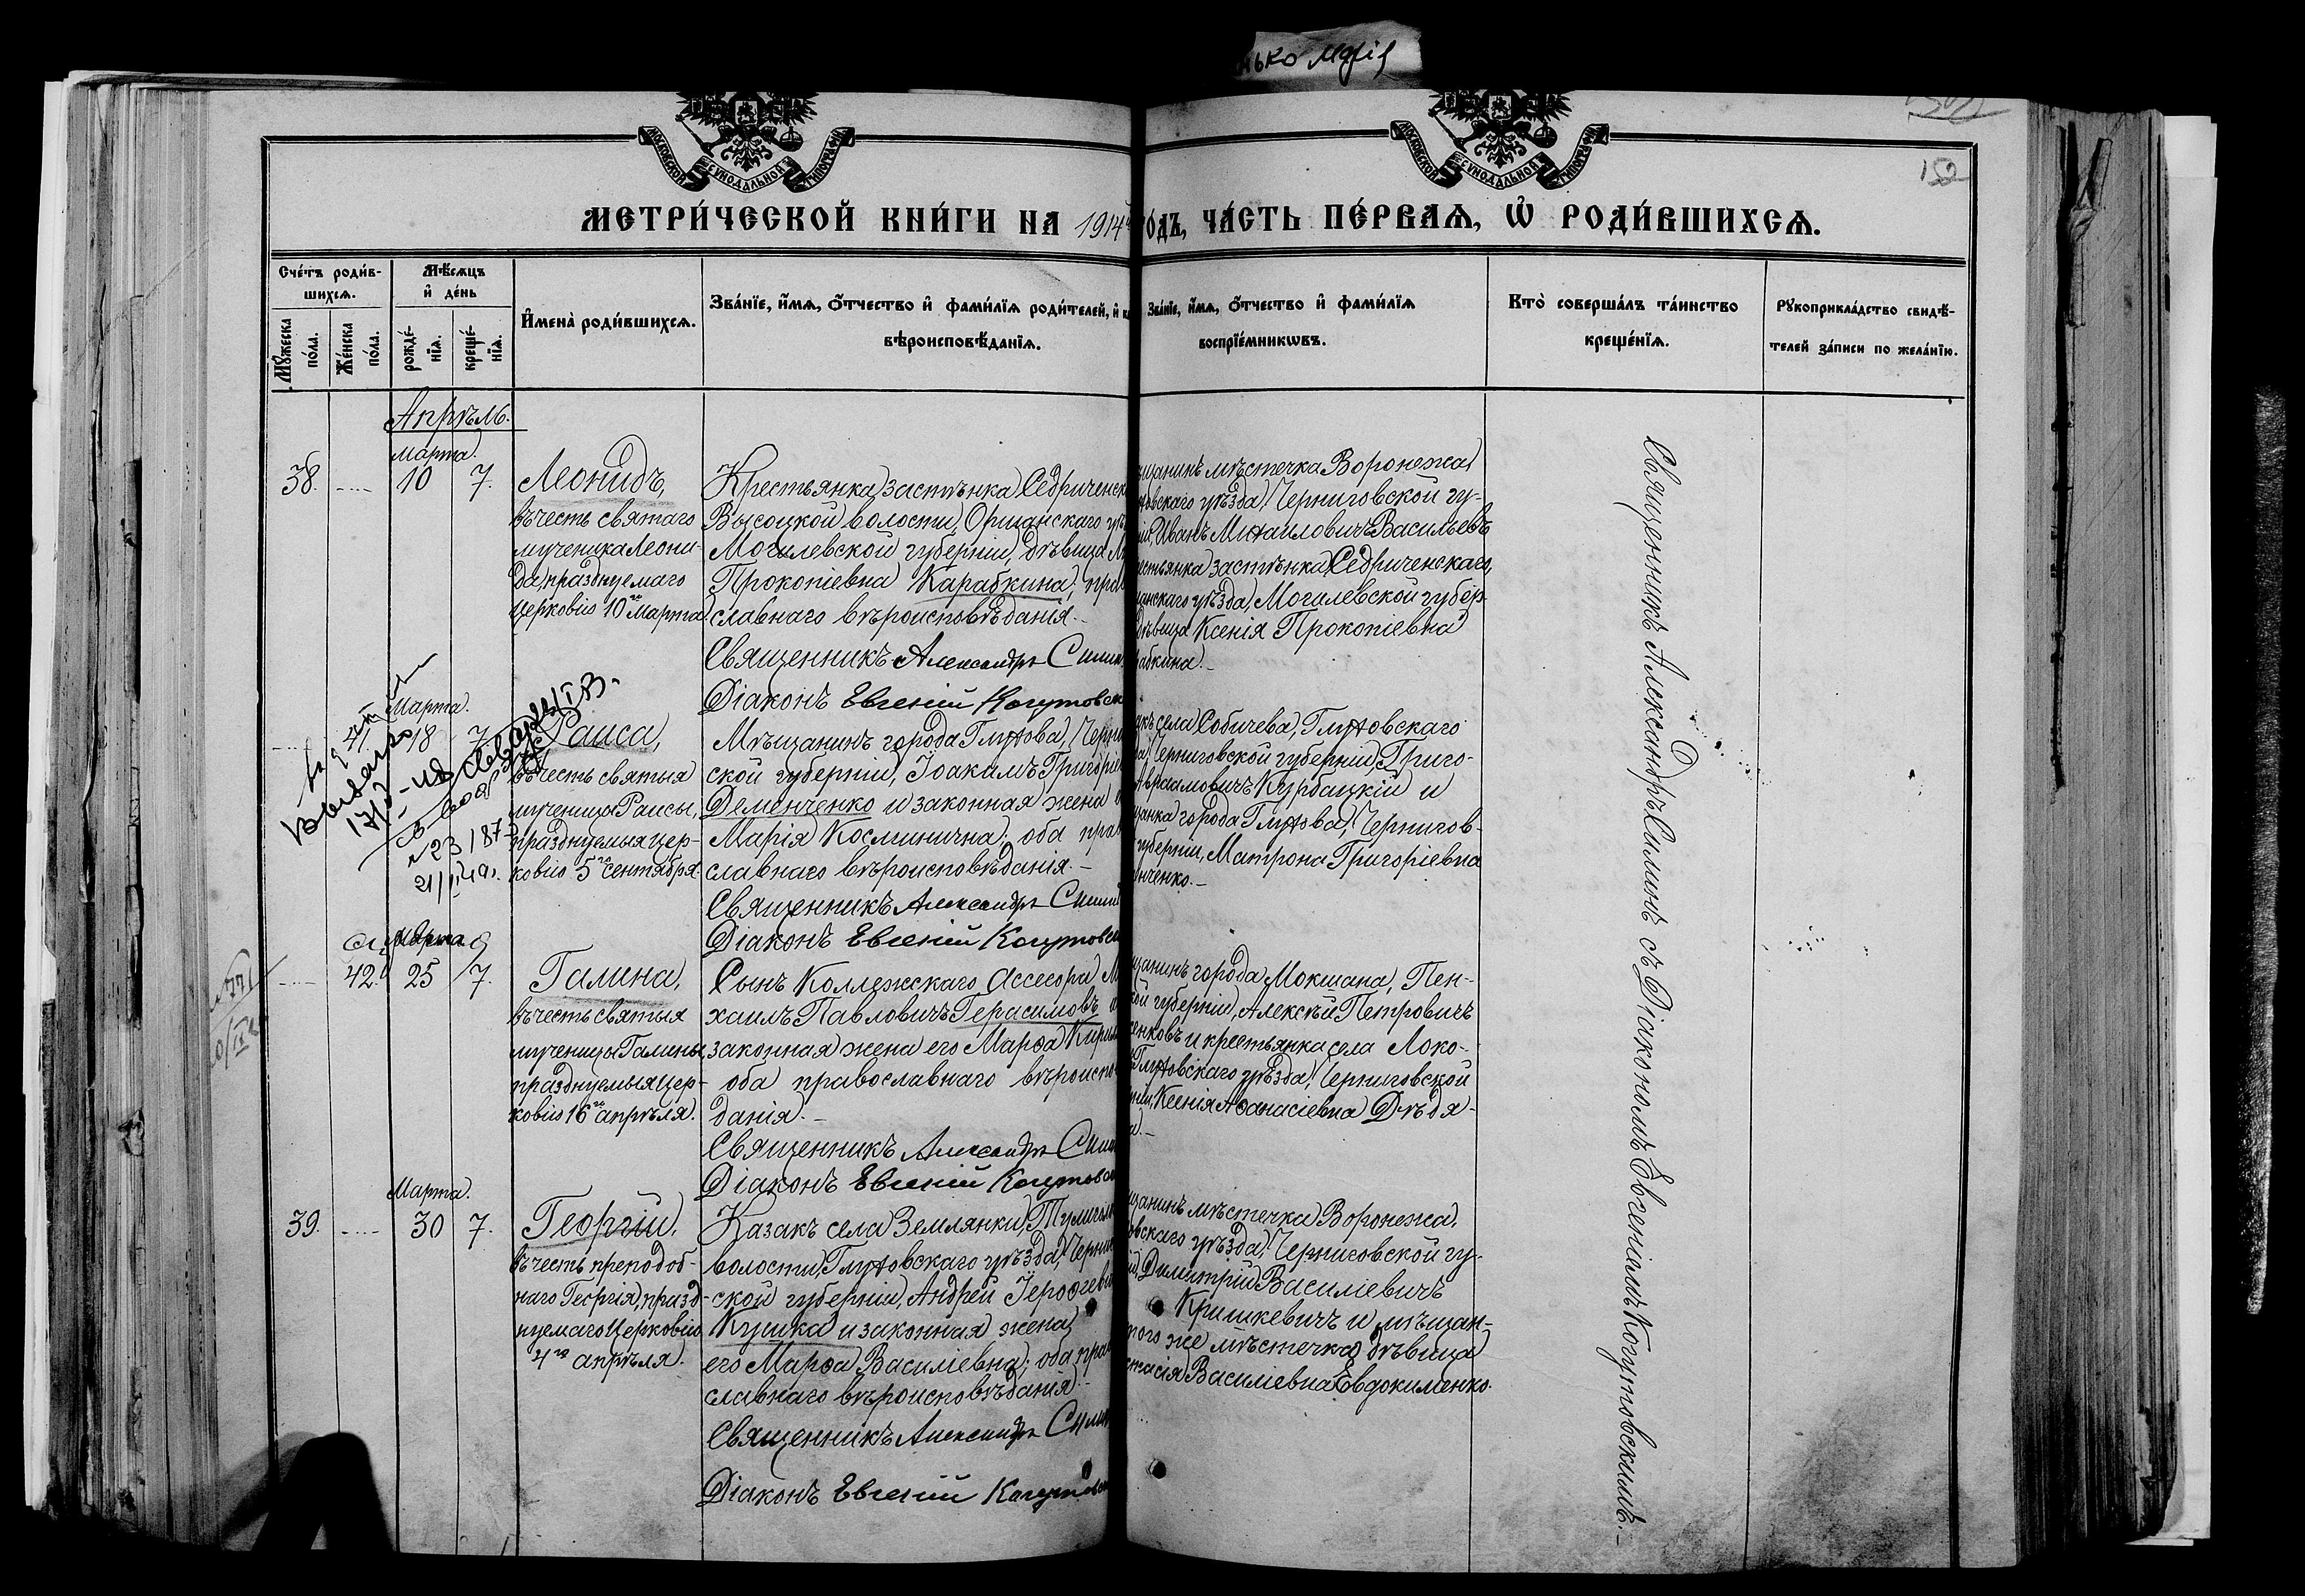 нько Марія
МОСКОВСКОЙ СѴНОДАЛЬНОЙ ТИПОГРАФІИ
МОСКОВСКОЙ СѴНОДАЛЬНОЙ ТИПОГРАФІИ
152
МЕТРИ́ЧЕСКОЙ КНИ́ГИ НА 1914 ГОДЪ, ЧА́СТЬ ПЕ́РВАѦ, Ѡ РОДИ́ВШИХСѦ.
Сче́тъ роди́в-
шихсѧ.
Мꙋ́жеска по́ла.
Же́нска по́ла.
Мѣ́сѧцъ
и҆ де́нь
рожде́-
нїѧ.
креще́-
нїѧ.
И҆мена̀ роди́вшихсѧ.
Зва́нїе, и҆́мѧ, ѻ҆́тчество и҆ фами́лїѧ роди́телей, и҆ к
вѣроисповѣ́данїѧ.
Зва́нїе, и҆́мѧ, ѻ҆́тчество и҆ фами́лїѧ
воспрїе́мникѡвъ.
Кто̀ соверша́лъ та́инство
креще́нїѧ.
Рꙋкоприкла́дство свидѣ́-
телей за́писи по жела́нїю.
Апрѣль.
Марта.
38. 10 7. Леонидъ,
въ честь святаго
мученика Леони-
да, празднуемаго
церковію 10го Марта.
Крестьянка застѣнка Седриченск
Высоцкой волости, Оршанскаго уѣ
Могилевской губерніи, дѣвица
Прокопіевна Карабкина, пра
славнаго вѣроисповѣданія.-
Священникъ Александръ Силин
Діаконъ Евгеній Когутовск
щанинъ мѣстечка Воронежа
овскаго уѣзда, Черниговской гу-
ніи, Иванъ Михаиловичъ Васильевъ
естьянка застѣнка Седриченскаго,
анскаго уѣзда, Могилевской губер-
дѣвица Ксенія Прокопіевна
абкина.-
Марта.
41 18 7. Раиса,
въ честь святыя
мученицы Раисы,
празднуемыя цер-
ковію 5го сентября.
Мѣщанинъ города Глухова, Черни
ской губерніи, Іоакимъ Григоріе
Деменченко и законная жена
Марія Косминична; оба пра
славнаго вѣроисповѣданія.-
Священникъ Александръ Силин
Діаконъ Евгеній Когутовск
села Собичева, Глуховскаго
Черниговской губерніи, Григо-
Авраамовичъ Курбацкій и
щанка города Глухова, Чернигов-
губерніи, Матрона Григоріевна
нченко.-
№23/87
Марта
42. 25 7. Галина,
въ честь святыя
мученицы Галины,
празднуемыя цер-
ковію 16го апрѣля.
Сынъ Коллежскаго Ассесора М
хаилъ Павловичъ Герасимовъ
законная жена его Марѳа Кирил
оба православнаго вѣроиспо
данія.-
Священникъ Александръ Силин
Діаконъ Евгеній Когутовск
щанинъ города Мокшана, Пен-
кой губерніи, Алексѣй Петровичъ
енковъ и крестьянка села Локо-
Глуховскаго уѣзда, Черниговской
ніи, Ксенія Аѳанасіевна Дѣдя-
а.-
Марта.
39. 30 7. Георгій,
въ честь преподоб-
наго Георгія, празд-
нуемаго Церковію
4го апрѣля.
Казакъ села Землянки, Тулиголо
волости, Глуховскаго уѣзда, Черни
ской губерніи, Андрей Іероѳеви
Кушка и законная жена
его Марѳа Василіевна; оба прав
славнаго вѣроисповѣданія.-
Священникъ Александръ Силин
Діаконъ Евгеній Когутовск
щанинъ мѣстечка Воронежа,
овскаго уѣзда, Черниговской гу-
Димитрій Василіевичъ
Кришкевичъ и мѣщан-
того же мѣстечка дѣвица
тасія Василіевна Евдокименко.
Священникъ Александръ Силинъ съ Діакономъ Евгеніемъ Когутовскимъ.-